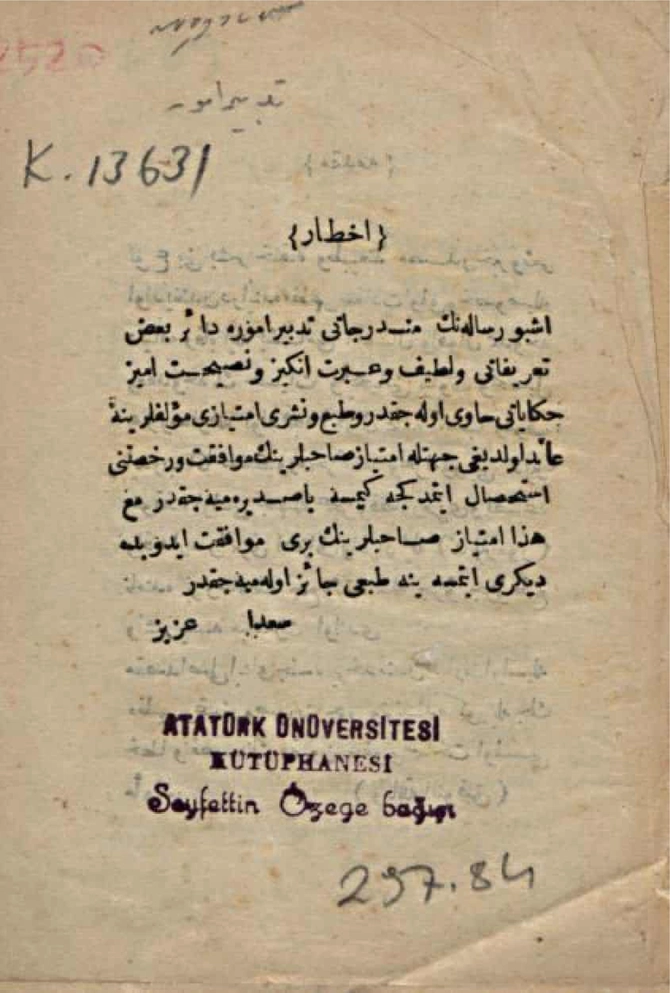 تدبير امور
K. 13631
﴿ اخطار ﴾
اشبو رساله‌نك مندرجاتی تدبیر اموره دائر بعض
تعریفاتی ولطیف وعبرت انكیز ونصیحت امیز
حكایاتی حاوی اوله‌جقدر وطبع ونشری امتیازی مؤلفلرینه
عائد اولدیغی جهتله امتیاز صاحبلرینك موافقت ورخصتنی
استحصال ایتمدكجه كیمسه یاصدیره‌میه‌جقدر مع
هذا امتیاز صاحبلرینك بری موافقت ایدوبده
دیكری ایتمسه ینه طبعی جائز اوله‌میه‌جقدر
عزیز
ATATÜRK ÜNÜVERSİTESİ
KÜTÜPHANESİ
Seyfettin Özege bağışı
297.84